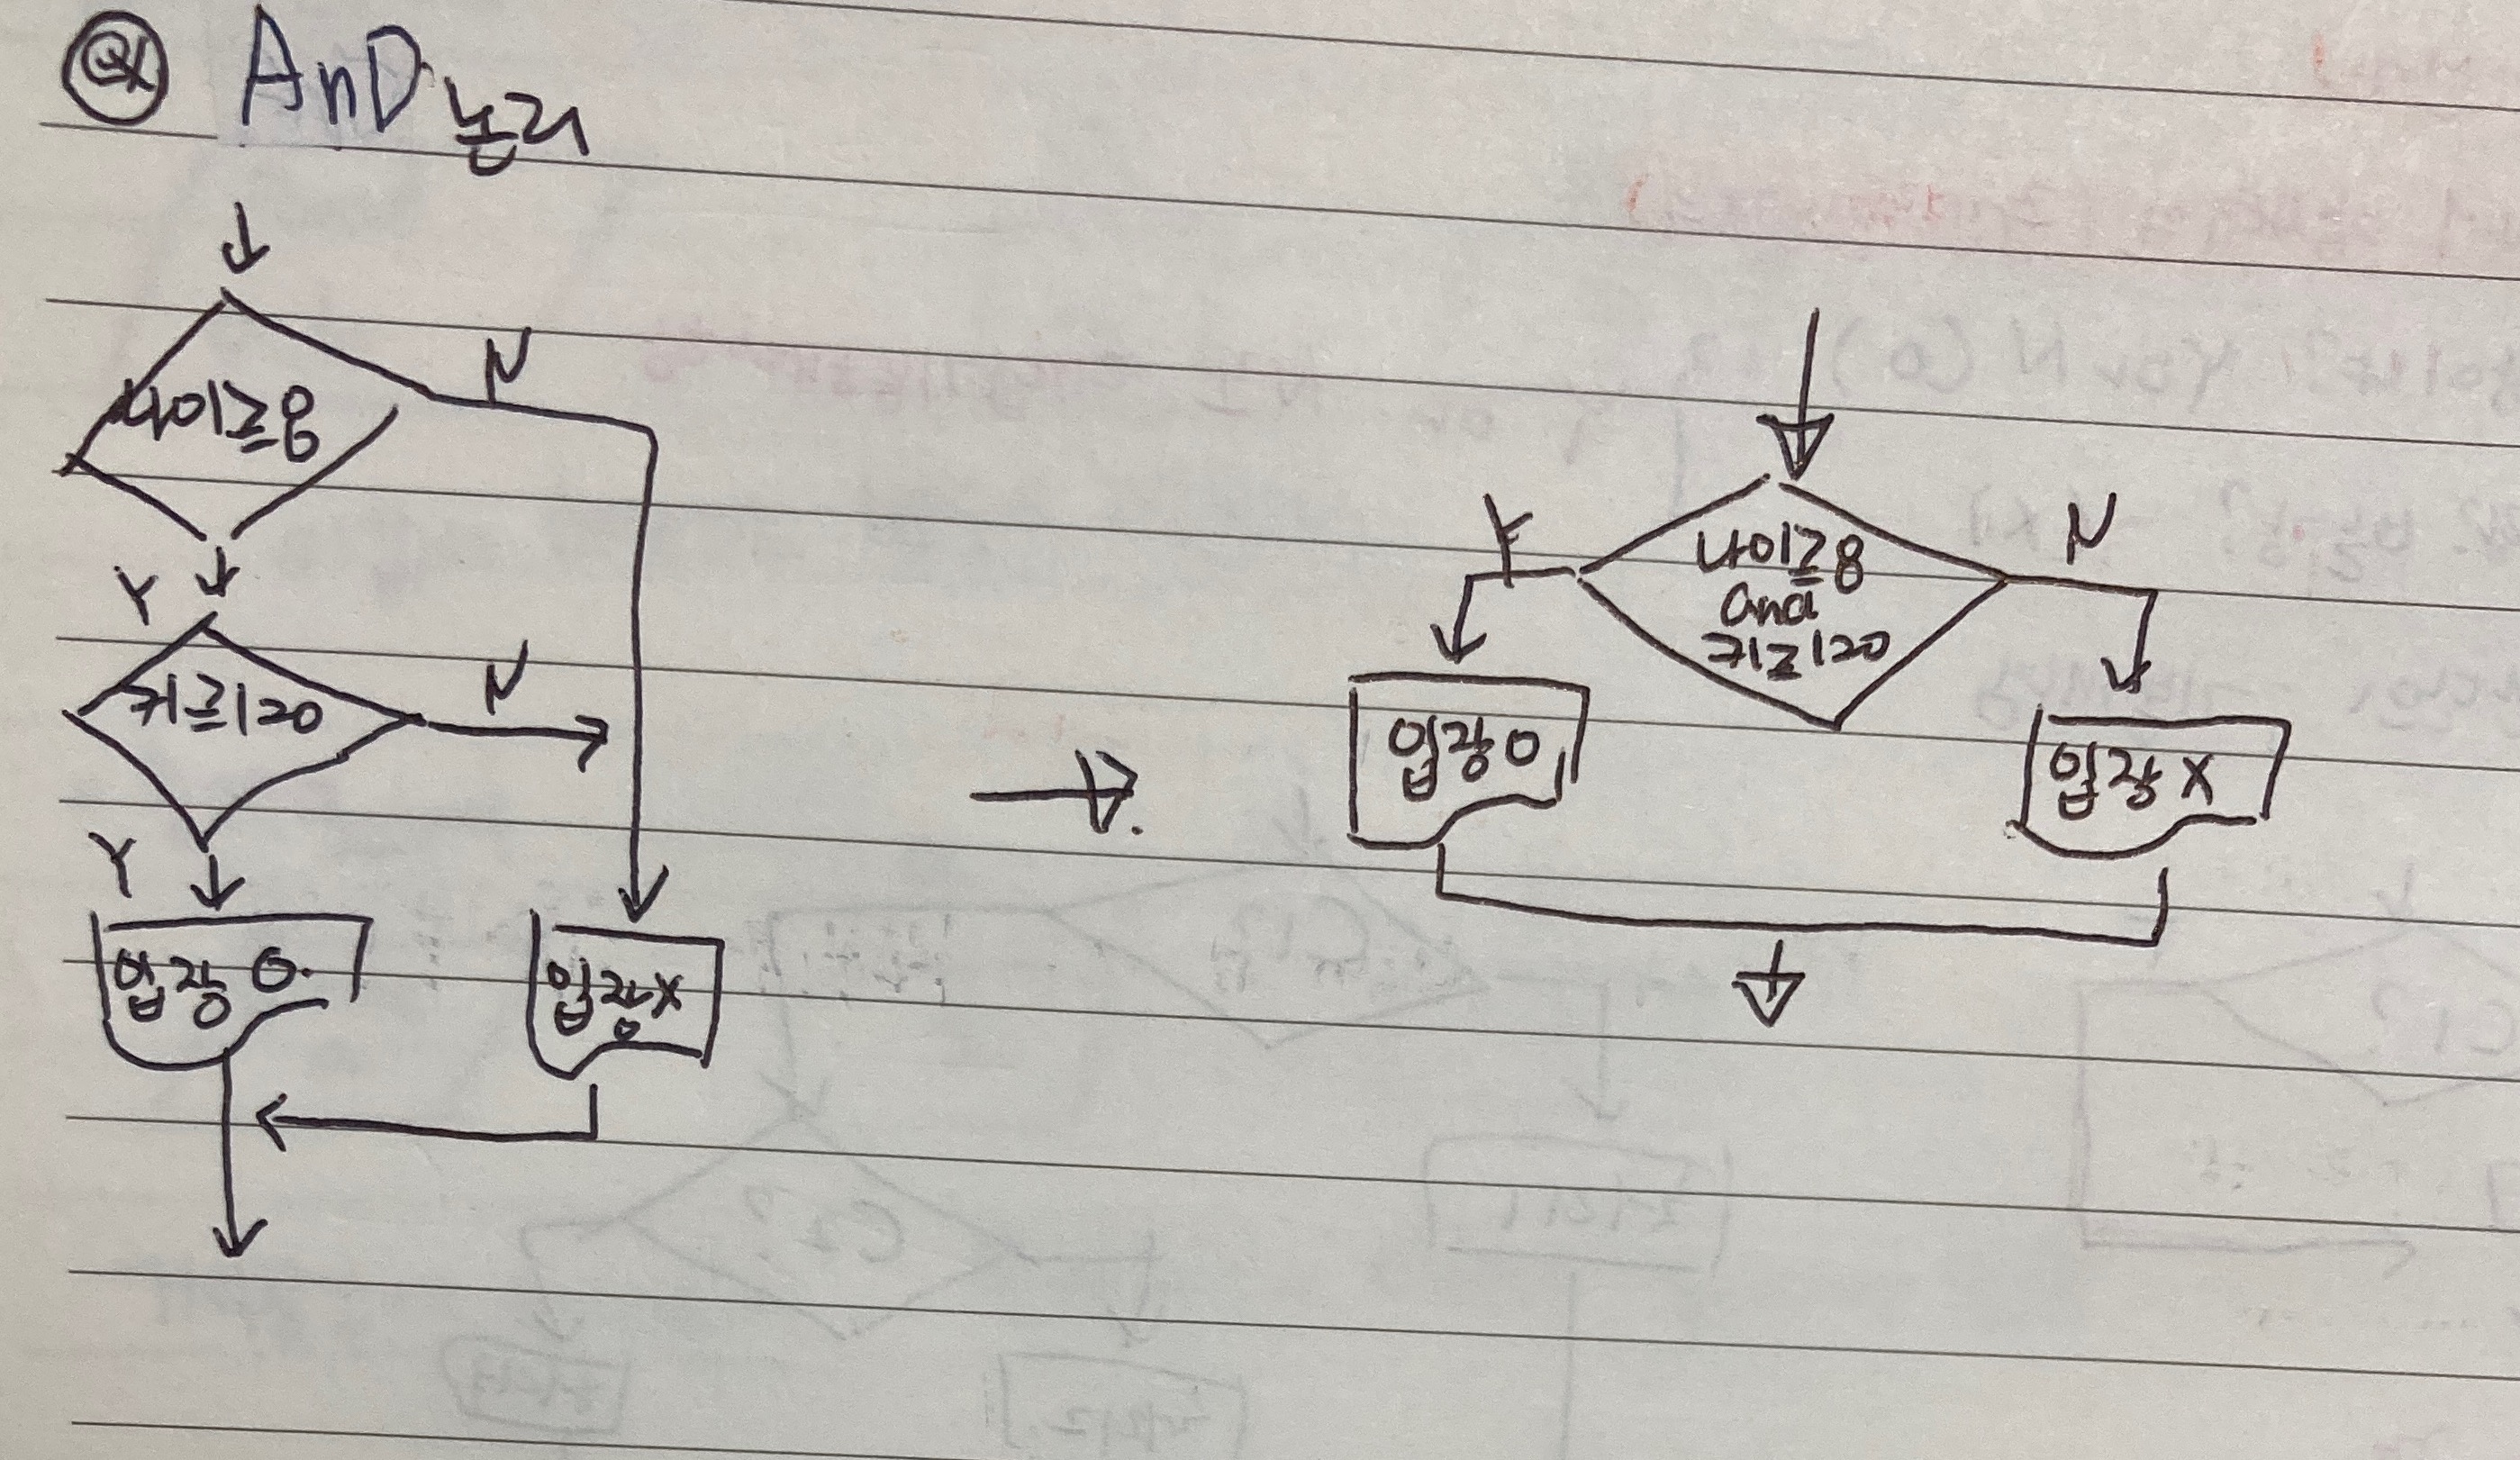 AnD 논리
N
나이≥8
Y
N
키≥120
Y
입장 O.
입장X
Y
N
나이≥8
and
키≥120
입장O
입장X